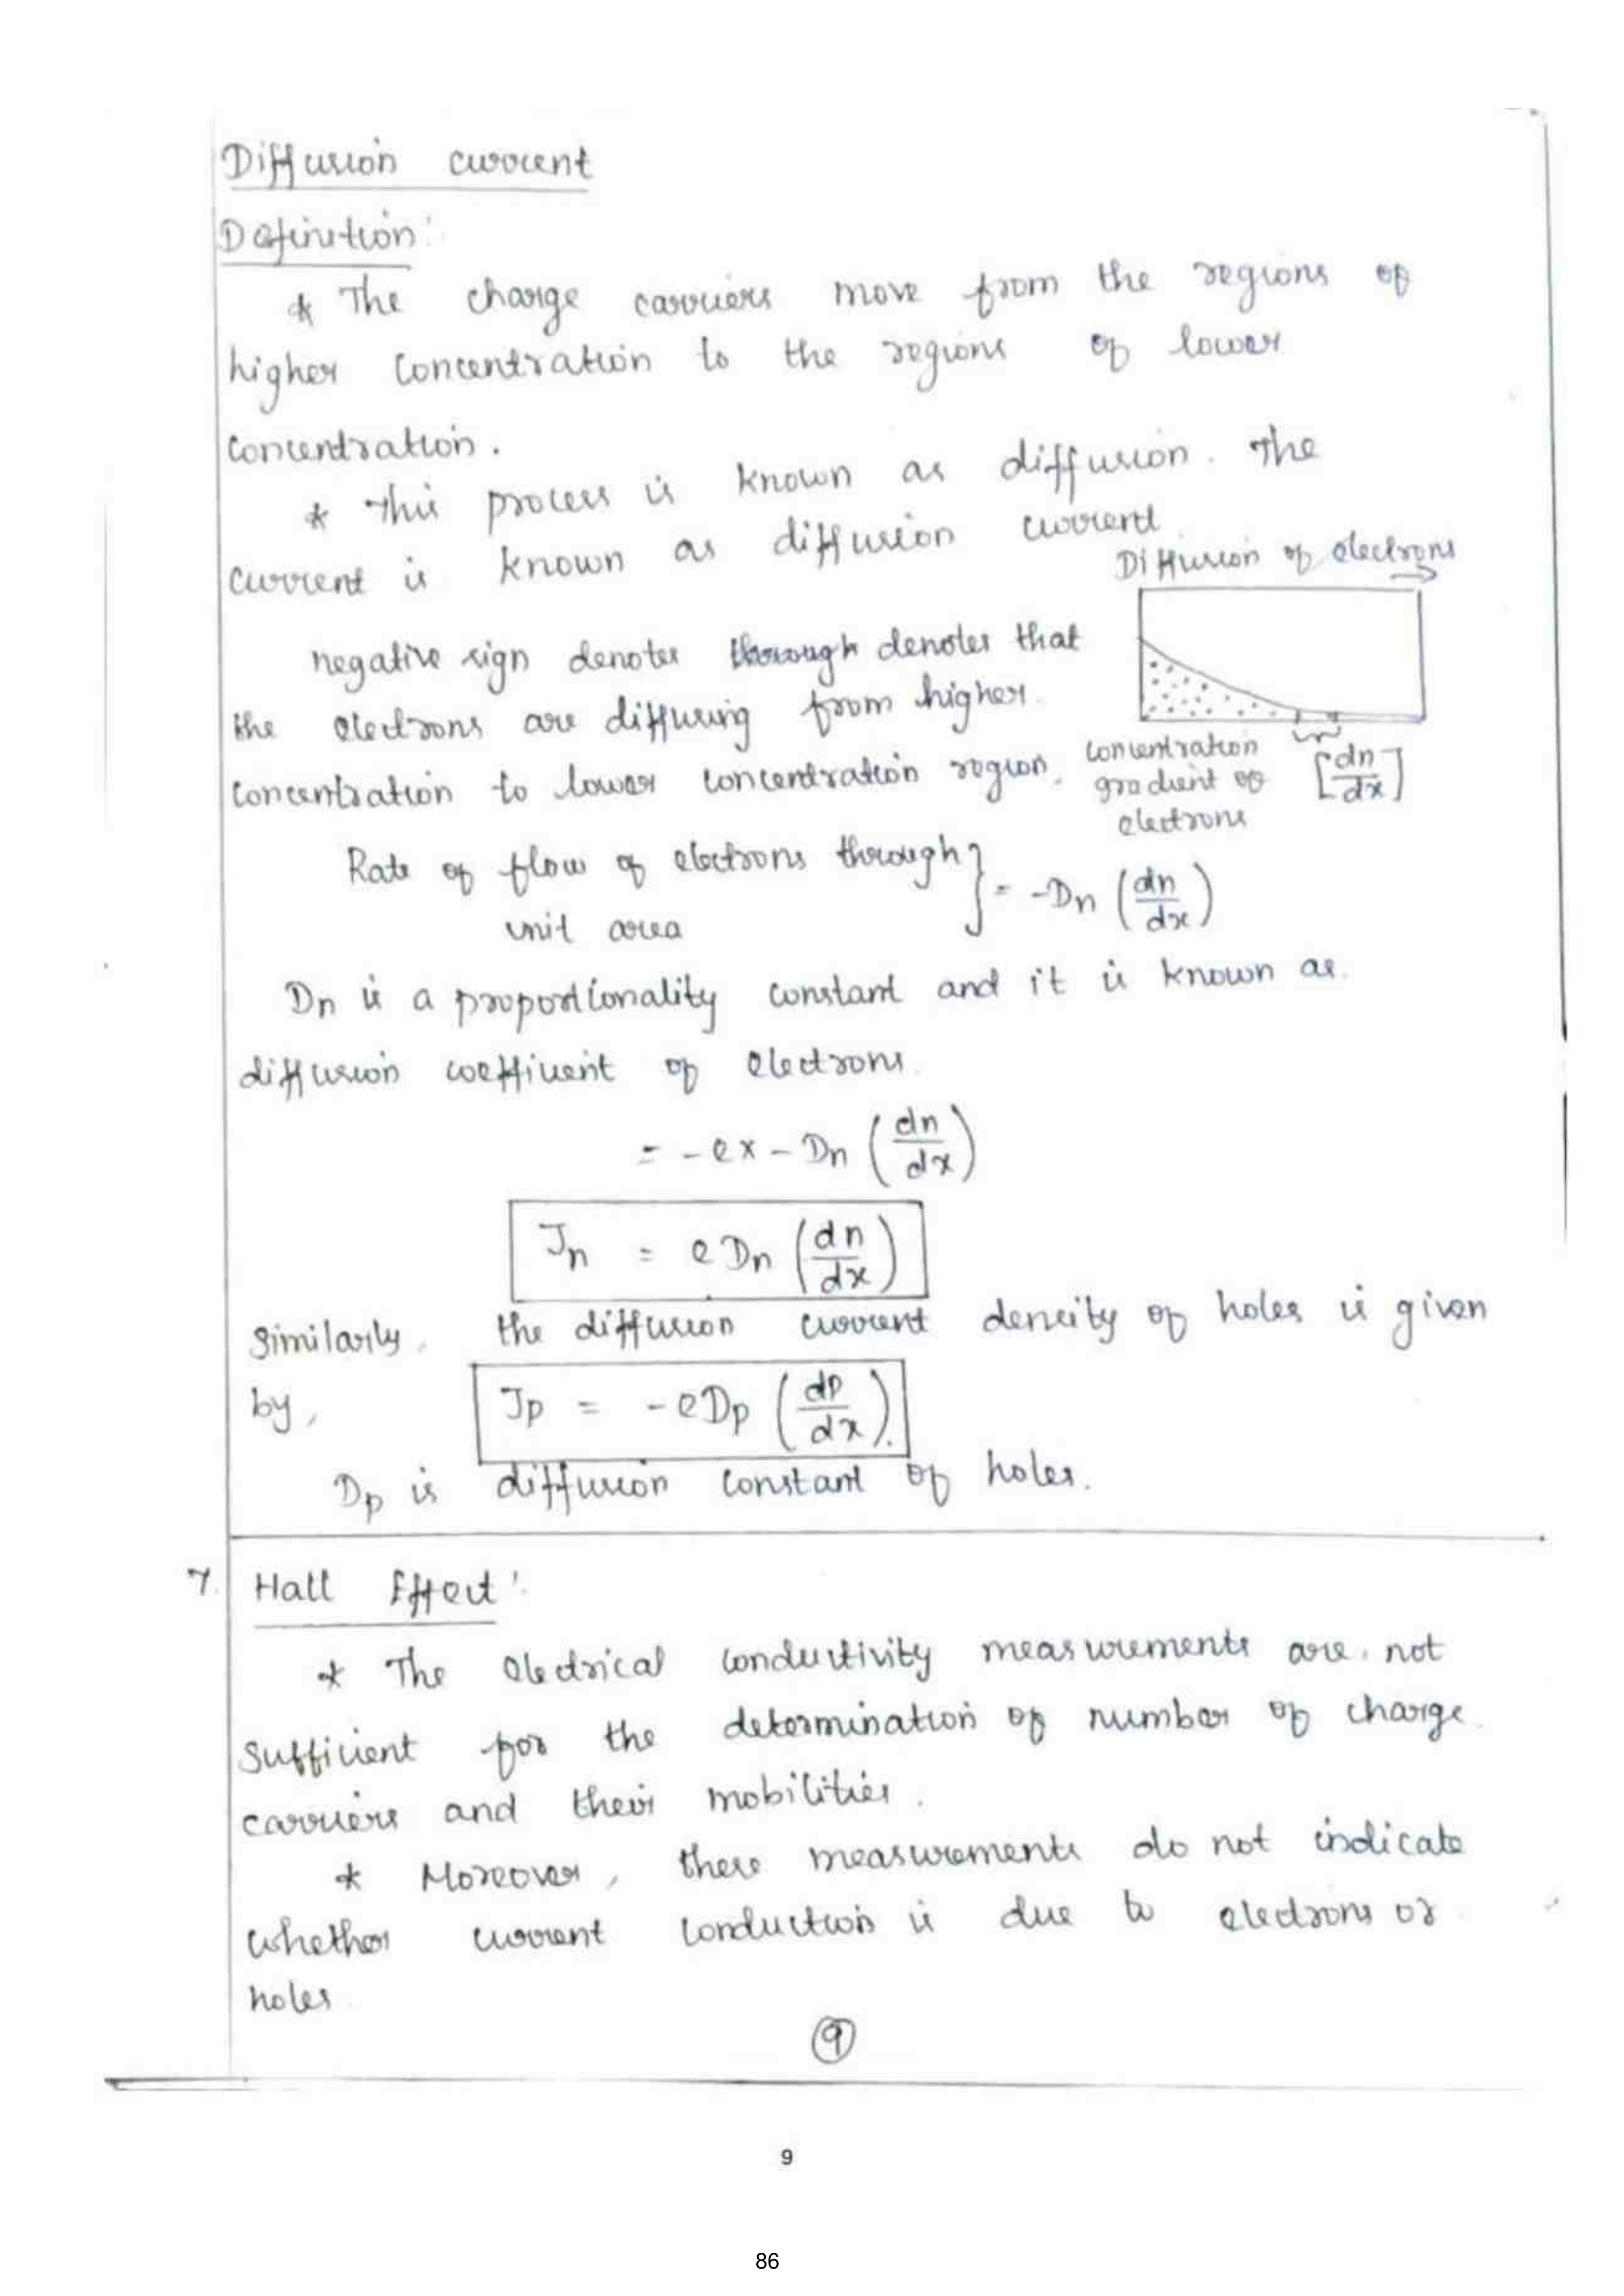 Diffusion current
Definition:
* The charge carriers move from the regions of
higher concentration to the regions of lower
concentration.
* This process is known as diffusion. The
current is known as diffusion current
Diffusion of electrons
negative sign denotes through denotes that
the electrons are diffusing from higher
concentration to lower concentration region.
concentration
gradient of
electrons
[dn/dx]
Rate of flow of electrons through
unit area } = -Dn (dn/dx)
Dn is a proportionality constant and it is known as
diffusion coefficient of electrons.
= -e x - Dn (dn/dx)
Jn = e Dn (dn/dx)
Similarly, the diffusion current density of holes is given
by,
Jp = -eDp (dp/dx).
Dp is diffusion constant of holes.
7. Hall Effect:
* The electrical conductivity measurements are not
sufficient for the determination of number of charge
carriers and their mobilities.
* Moreover, these measurements do not indicate
whether current conduction is due to electrons or
holes
9
9
86